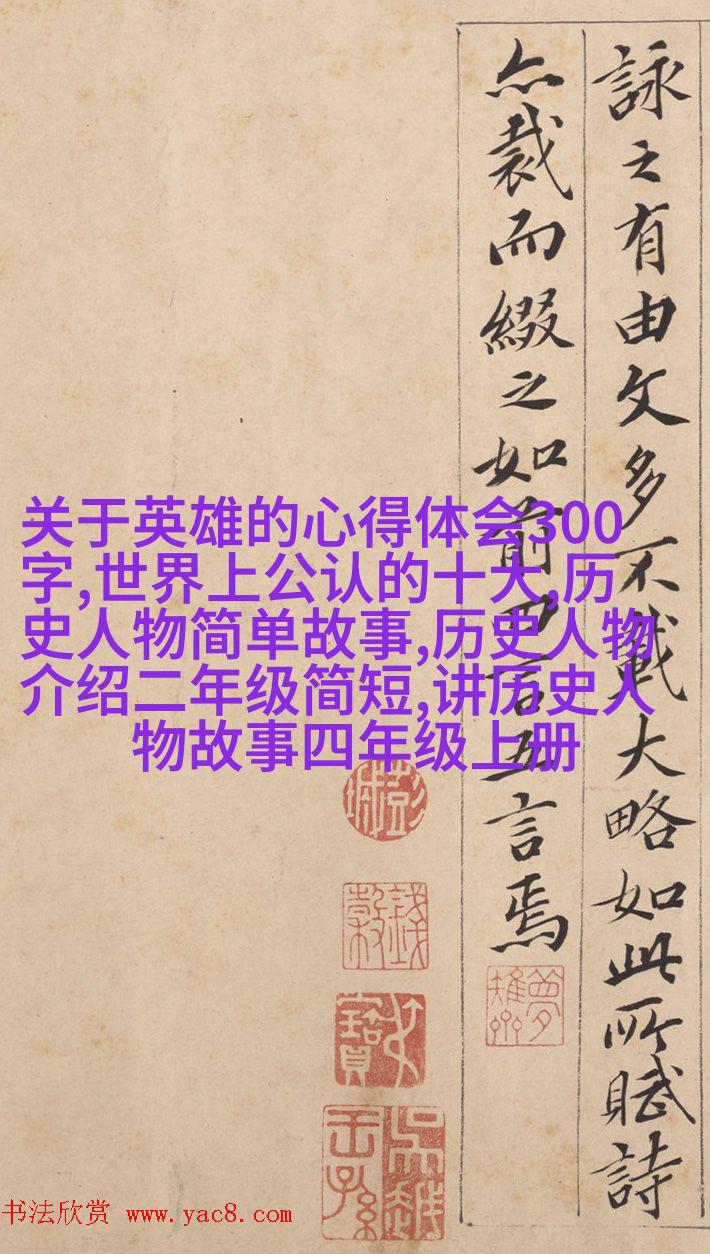 詠之有由文多不載大略如此所賦詩
亦裁而綴之如前四言五言焉
关于英雄的心得体会300
字,世界上公认的十大,历
史人物简单故事,历史人物
介绍二年级简短,讲历史人
物故事四年级上册
书法欣赏 www.yac8.com